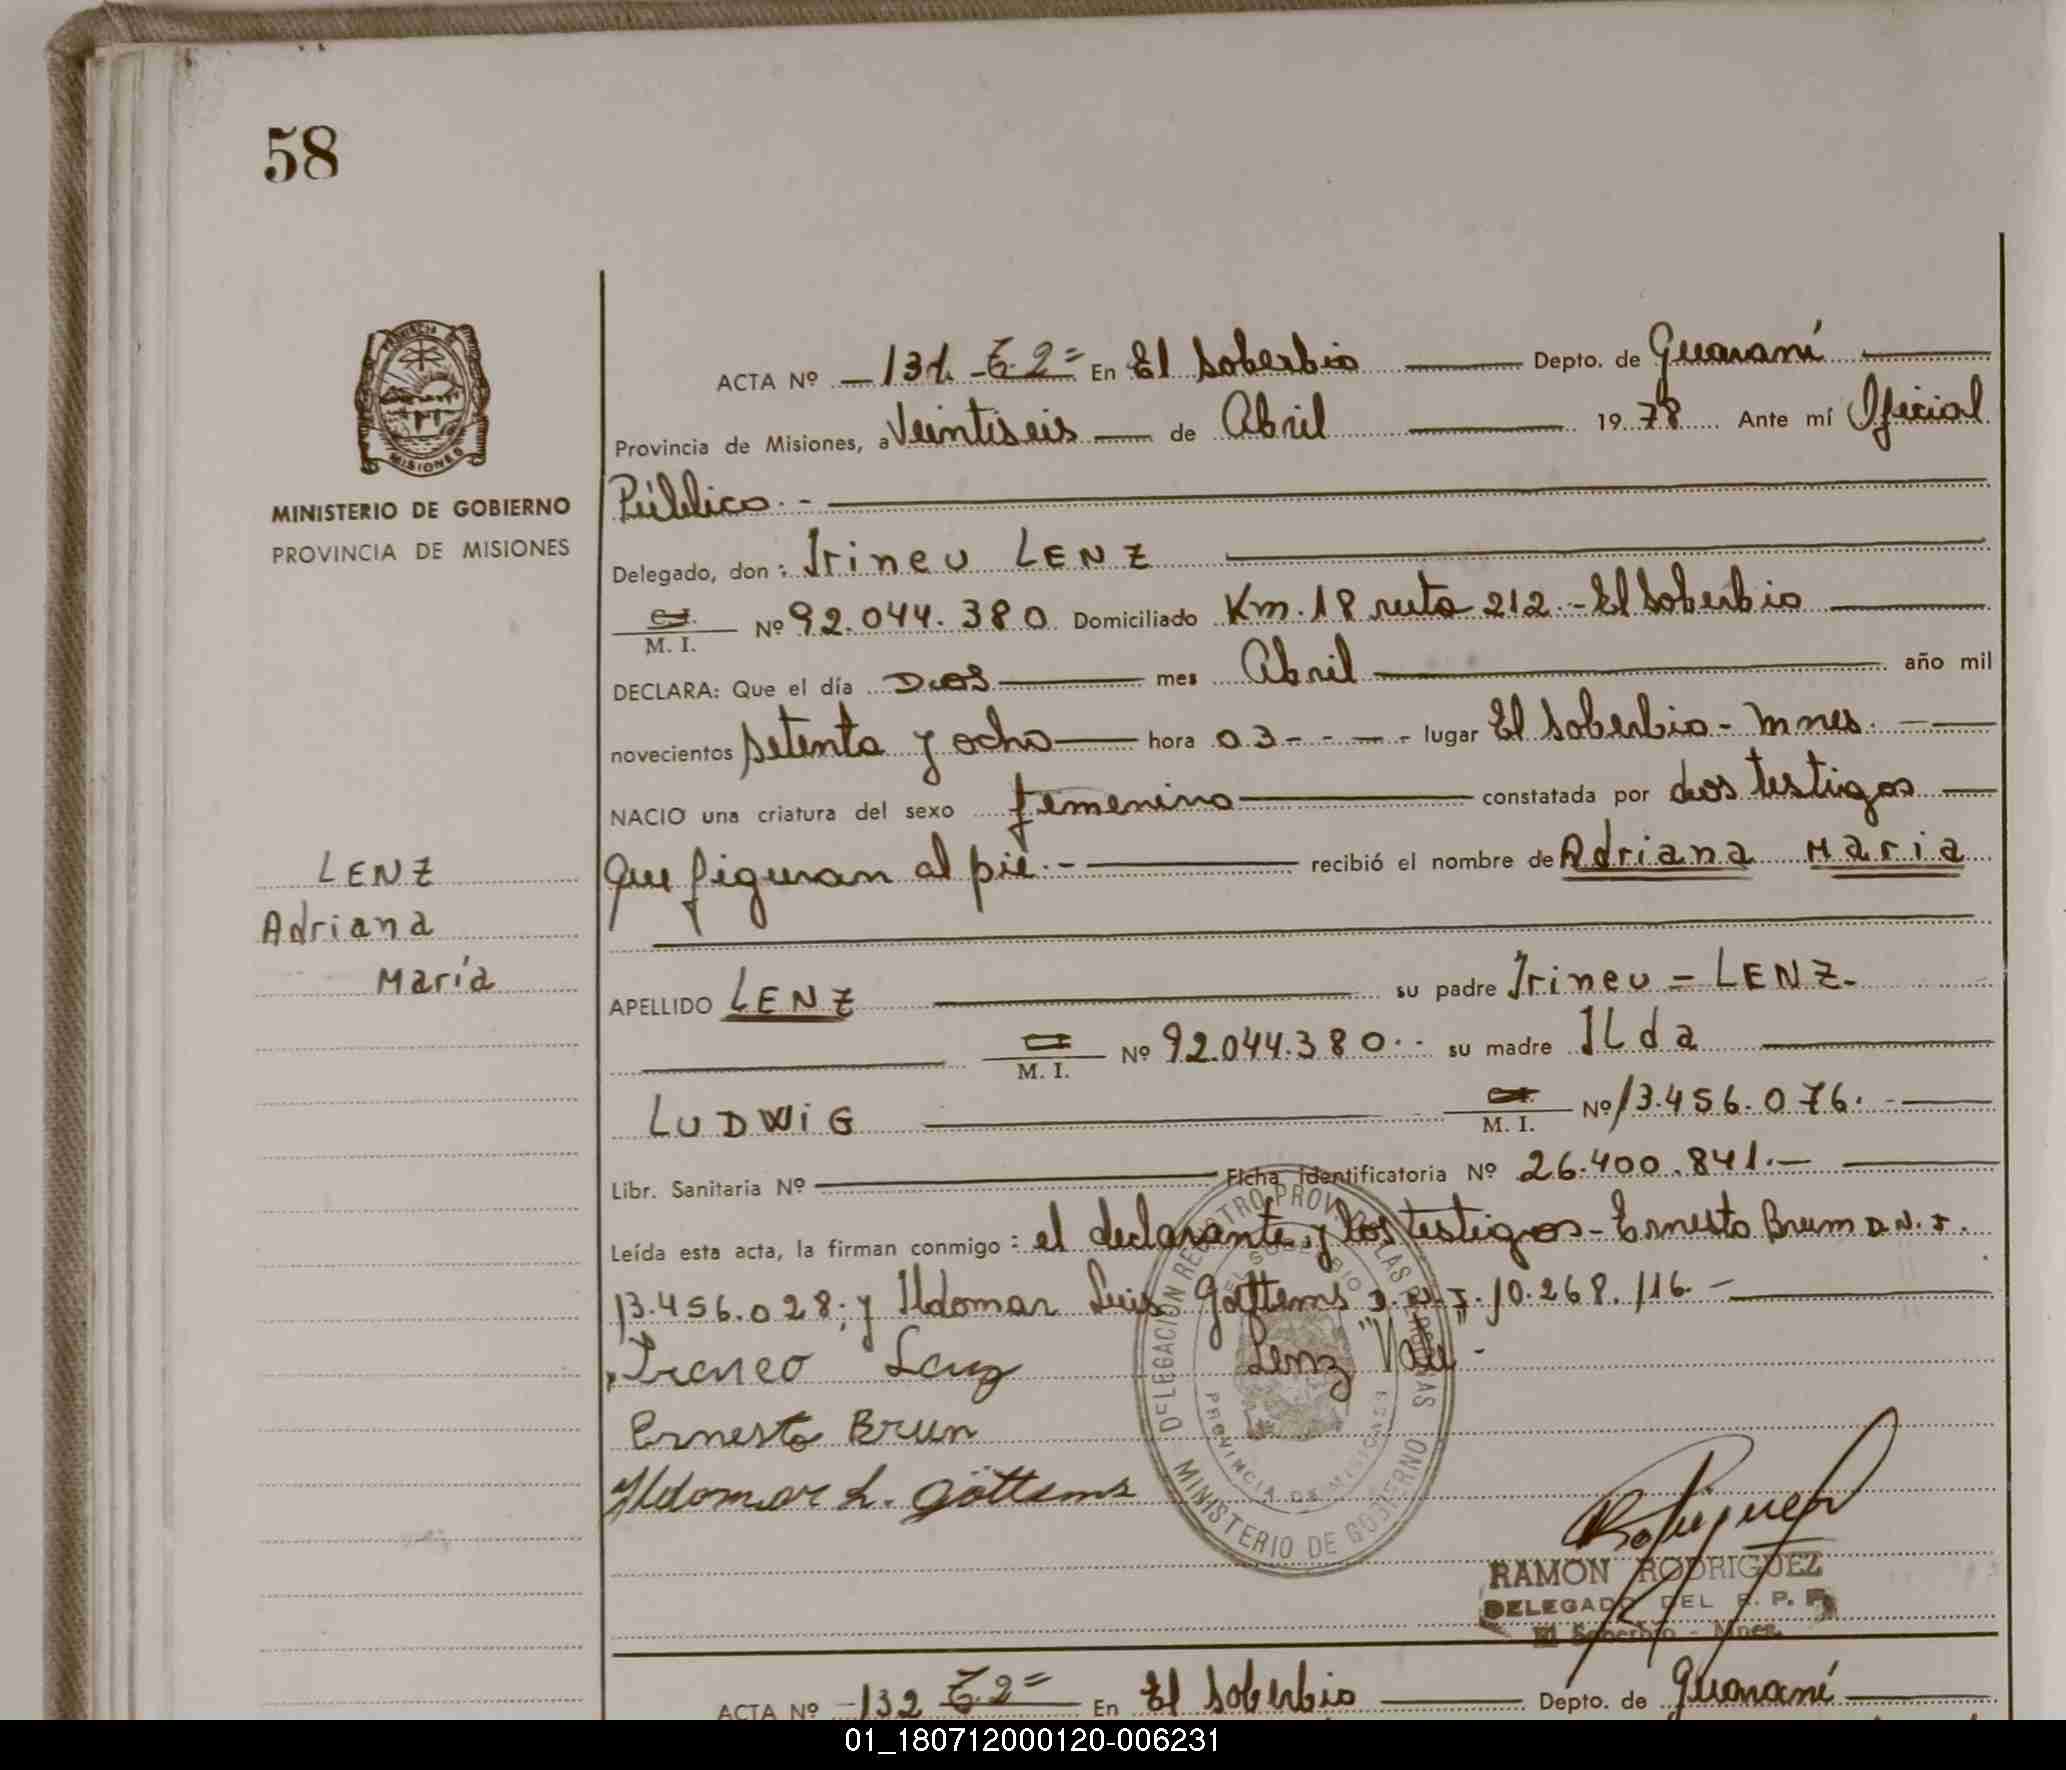 58
PROVINCIA
MISIONES
MINISTERIO DE GOBIERNO
PROVINCIA DE MISIONES
LENZ
Adriana
María
ACTA Nº 131. T. 2= En El Soberbio Depto. de Guaraní
Provincia de Misiones, a Veintiseis de Abril 1978 Ante mí Oficial
Público.-
Delegado, don: Irineu LENZ
C.I.
M. I. Nº 92.044.380 Domiciliado Km.18 ruta 212.-El Soberbio
DECLARA: Que el día Dos mes Abril año mil
novecientos setenta y ocho hora 03---- lugar El Soberbio - Mnes.
NACIO una criatura del sexo femenino constatada por dos testigos
que figuran al pie.- recibió el nombre de Adriana Maria
APELLIDO LENZ su padre Irineu = LENZ-
M. I. Nº 92.044.380.. su madre ILda
LUDWiG M. I. Nº 13.456.076.-
Libr. Sanitaria Nº Ficha Identificatoria Nº 26.400.841.-
Leída esta acta, la firman conmigo: el declarante, y los testigos - Ernesto Brum D.N.I.
13.456.028; y Ildomar Luis Gottems D.N.I. 10.268.116.-
Ireneo Lenz "Lenz Vale"-
Ernesto Brun
Ildomar L. Göttems
DELEGACION REGISTRO PROV. DE LAS PERSONAS
EL SOBERBIO
PROVINCIA DE MISIONES
MINISTERIO DE GOBIERNO
RAMON RODRIGUEZ
DELEGADO DEL R. P. P.
El Soberbio - Mnes.
ACTA Nº -132 T. 2= En El Soberbio Depto. de Guaraní
01_180712000120-006231